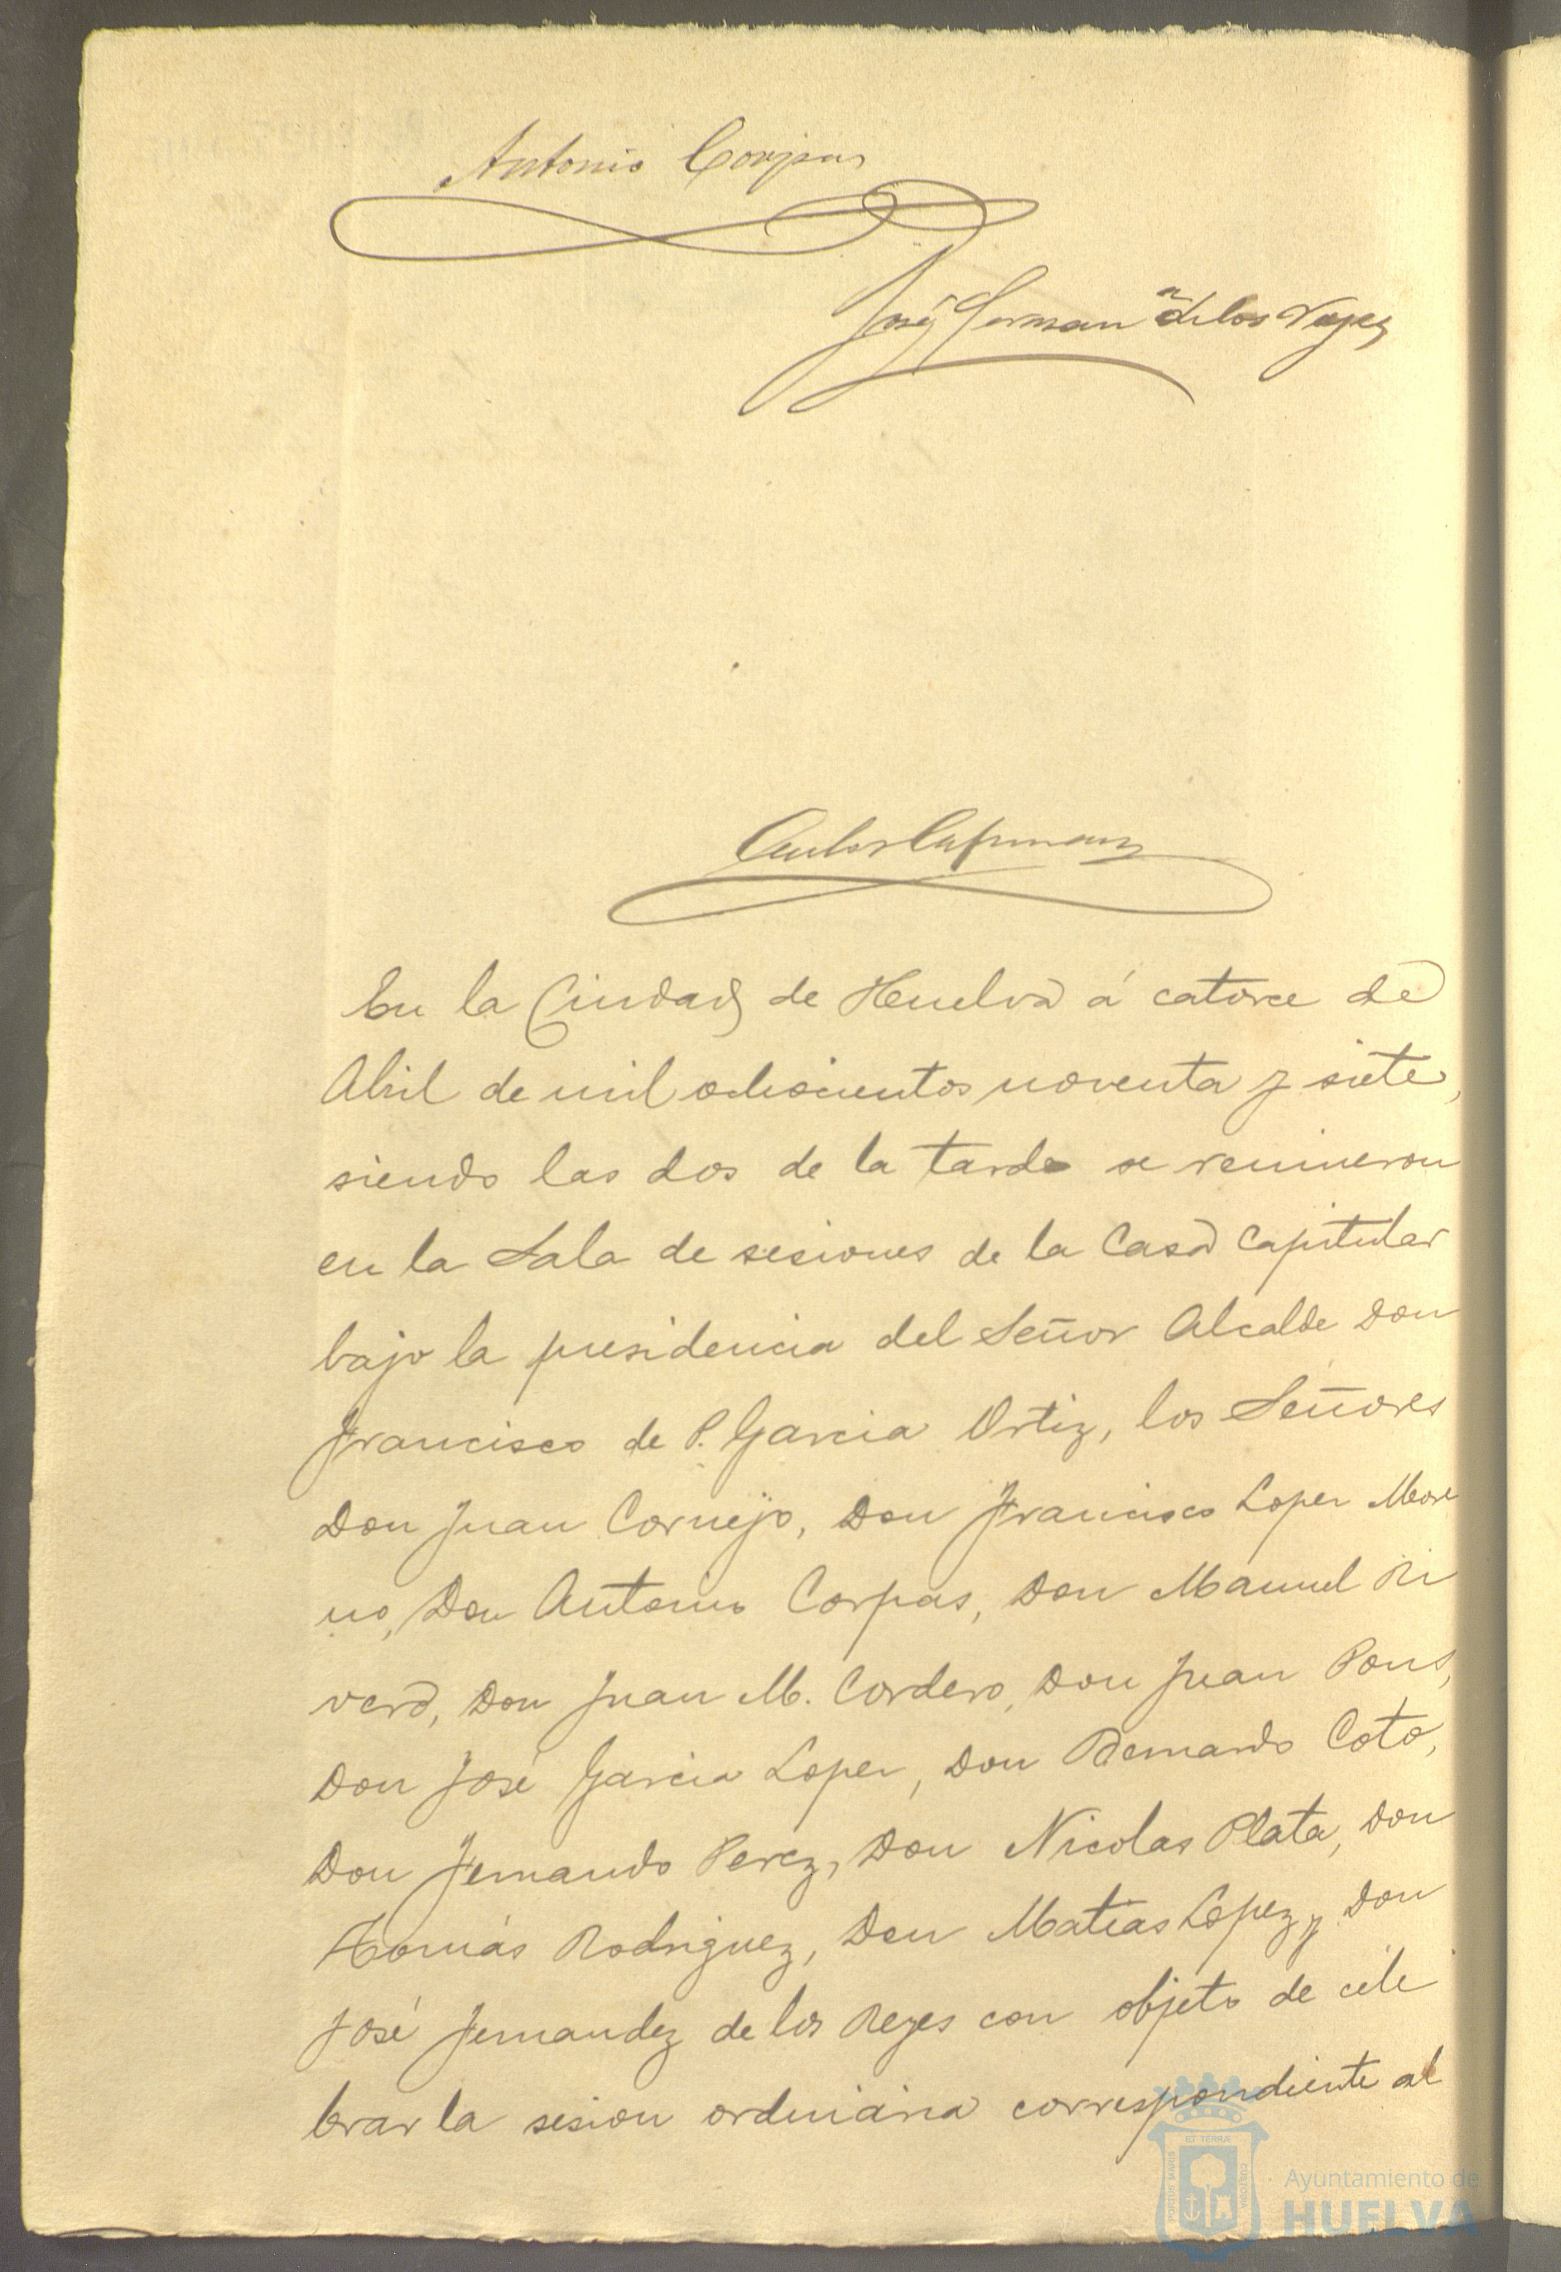 Antonio Corpas
José Fernan^n de los Reyes
Carlos Capmany
En la Ciudad de Huelva á catorce de
Abril de mil ochocientos noventa y siete,
siendo las dos de la tarde se reunieron
en la Sala de sesiones de la Casa Capitular
bajo la presidencia del Señor Alcalde Don
Francisco de P. Garcia Ortiz, los Señores
Don Juan Cornejo, Don Francisco Lopez More
no, Don Antonio Corpas, Don Manuel Ri
vero, Don Juan M. Cordero, Don Juan Pons,
Don José Garcia Lopez, Don Bernardo Coto,
Don Fernando Perez, Don Nicolas Plata, Don
Tomás Rodriguez, Don Matias Lopez y Don
José Fernandez de los Reyes con objeto de cele
brar la sesion ordinaria correspondiente al
Ayuntamiento de
HUELVA